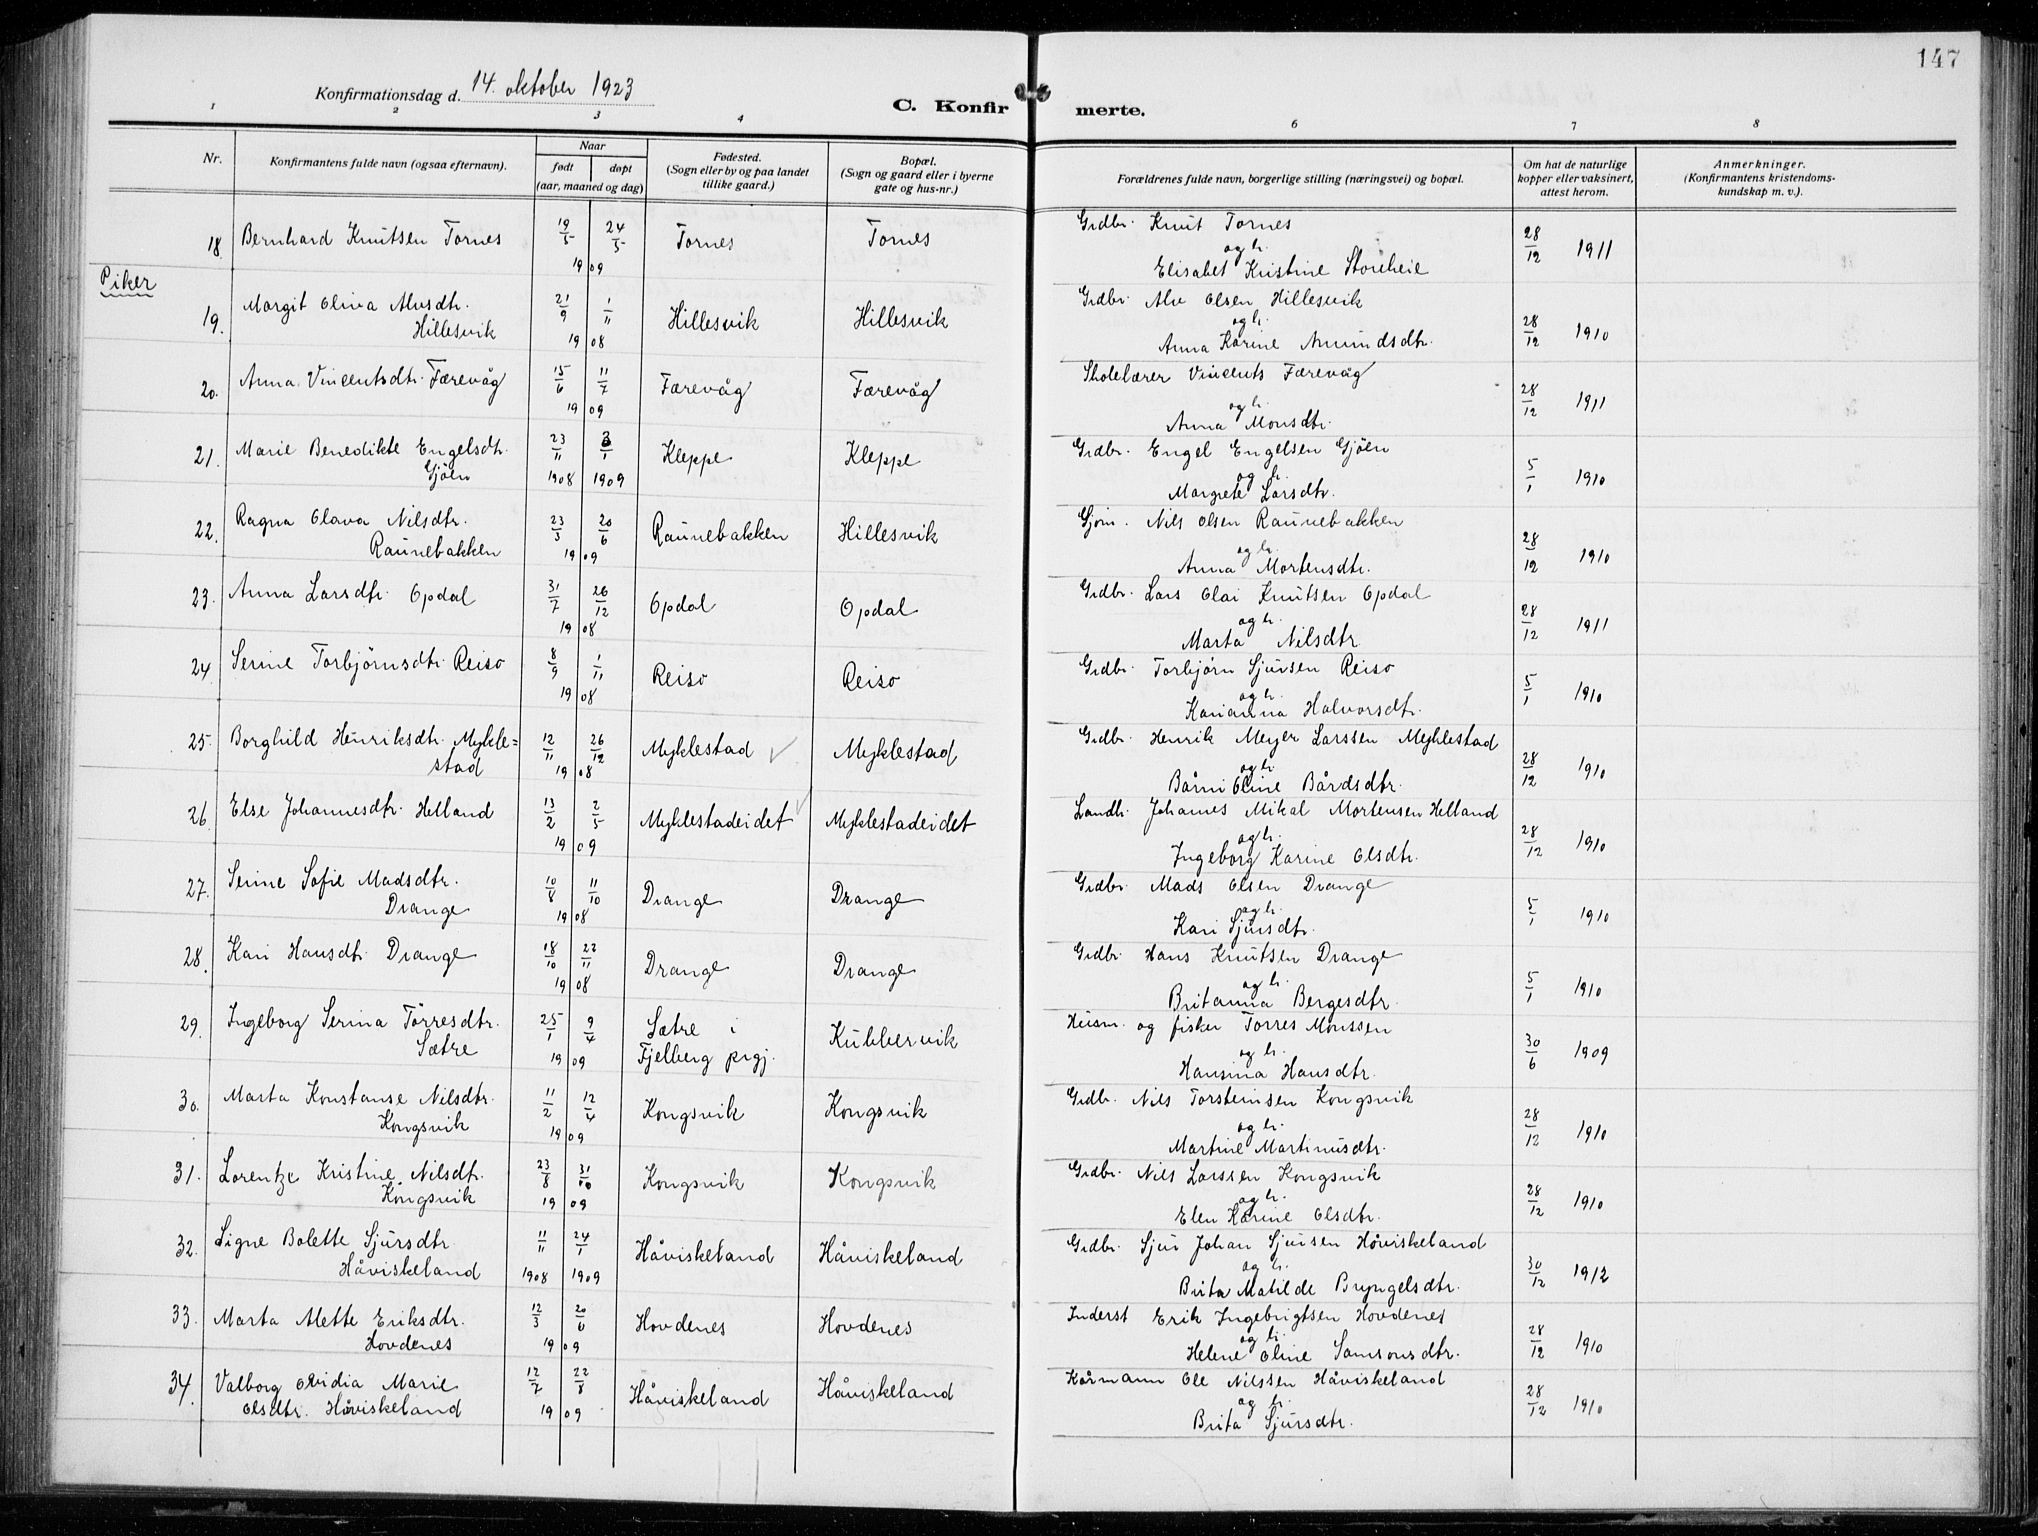 147
Konfirmationsdag d. 14. oktober 1923
C. Konfirmerte.
1 2 3 4 6 7 8
Nr.
Konfirmantens fulde navn (ogsaa efternavn).
Naar
født døpt
(aar, maaned og dag)
Fødested.
(Sogn eller by og paa landet
tillike gaard.)
Bopæl.
(Sogn og gaard eller i byerne
gate og hus-nr.)
Forældrenes fulde navn, borgerlige stilling (næringsvei) og bopæl.
Om hat de naturlige
kopper eller vaksinert,
attest herom.
Anmerkninger.
(Konfirmantens kristendoms-
kundskap m. v.).
18. Bernhard Knutsen Tornes 19/5 24/5 1909 Tornes Tornes Grdbr. Knut Tornes
og h.
Elisabet Kristine Storeheie 28/12 1911
Piker
19. Margit Oliva Alvsdtr.
Hillesvik 21/9 1/11 1908 Hillesvik Hillesvik Grdbr. Alv Olsen Hillesvik
og h.
Anna Karine Amundsdtr. 28/12 1910
20. Anna Vincentsdtr. Færevåg 15/6 11/7 1909 Færevåg Færevåg Skolelærer Vincents Færevåg
og h.
Anna Monsdtr. 28/12 1911
21. Marie Benedikte Engelsdtr.
Gjöen 23/11 1908 3/1 1909 Kleppe Kleppe Grdbr. Engel Engelsen Gjöen
og h.
Margrete Larsdtr. 5/1 1910
22. Ragna Olava Nilsdtr.
Raunebakken 23/3 20/6 1909 Raunebakken Hillesvik Gjom. Nils Olsen Raunebakken
og h.
Anna Mortensdtr. 28/12 1910
23. Anna Larsdtr. Opdal 31/7 26/12 1908 Opdal Opdal Grdbr. Lars Olai Knutsen Opdal
og h.
Marta Nilsdtr. 28/12 1911
24. Serine Torbjørnsdtr. Reiso 8/9 1/11 1908 Reiso Reiso Grdbr. Torbjørn Sjursen Reiso
og h.
Karianna Halvorsdtr. 5/1 1910
25. Borghild Henriksdtr. Mykle=
stad 12/11 26/12 1908 Myklestad ✓ Myklestad Grdbr. Henrik Meyer Larssen Myklestad
og h.
Bårni Oline Bårdsdtr. 28/12 1910
26. Else Johannesdtr. Helland 13/2 2/5 1909 Myklestadeidet ✓ Myklestadeidet Landh. Johannes Mikal Mortensen Helland
og h.
Ingeborg Karine Olsdtr. 28/12 1910
27. Serine Sofie Madsdtr.
Drange 10/8 11/10 1908 Drange Drange Grdbr. Mads Olsen Drange
og h.
Kari Sjursdtr. 5/1 1910
28. Kari Hansdtr. Drange 18/10 22/11 1908 Drange Drange Grdbr. Hans Knutsen Drange
og h.
Britanna Bergesdtr. 5/1 1910
29. Ingeborg Serina Törresdtr.
Sætre 25/1 9/4 1909 Sætre i
Fjelberg prgj. Kubbervik Husm. og fisker Torres Monssen
og h.
Hansina Hansdtr. 30/6 1909
30. Marta Konstanse Nilsdtr.
Kongsvik 11/2 12/4 1909 Kongsvik Kongsvik Grdbr. Nils Torsteinsen Kongsvik
og h.
Martine Martinusdtr. 28/12 1910
31. Lorentze Kristine Nilsdtr.
Kongsvik 23/8 31/10 1909 Kongsvik Kongsvik Grdbr. Nils Larssen Kongsvik
og h.
Elen Karine Olsdtr. 28/12 1910
32. Signe Bolette Sjursdtr.
Håviskeland 11/11 1908 24/1 1909 Håviskeland Håviskeland Grdbr. Sjur Johan Sjursen Håviskeland
og h.
Brita Matilde Bryngelsdtr. 30/12 1912
33. Marta Alette Eriksdtr.
Hovdenes 12/3 20/6 1909 Hovdenes Hovdenes Inderst Erik Ingebrigtsen Hovdenes
og h.
Helene Oline Samsonsdtr. 28/12 1910
34. Valborg Ovidia Marie
Olsdtr. Håviskeland 12/7 22/8 1909 Håviskeland Håviskeland Kårmann Ole Nilssen Håviskeland
og h.
Brita Sjursdtr. 28/12 1910